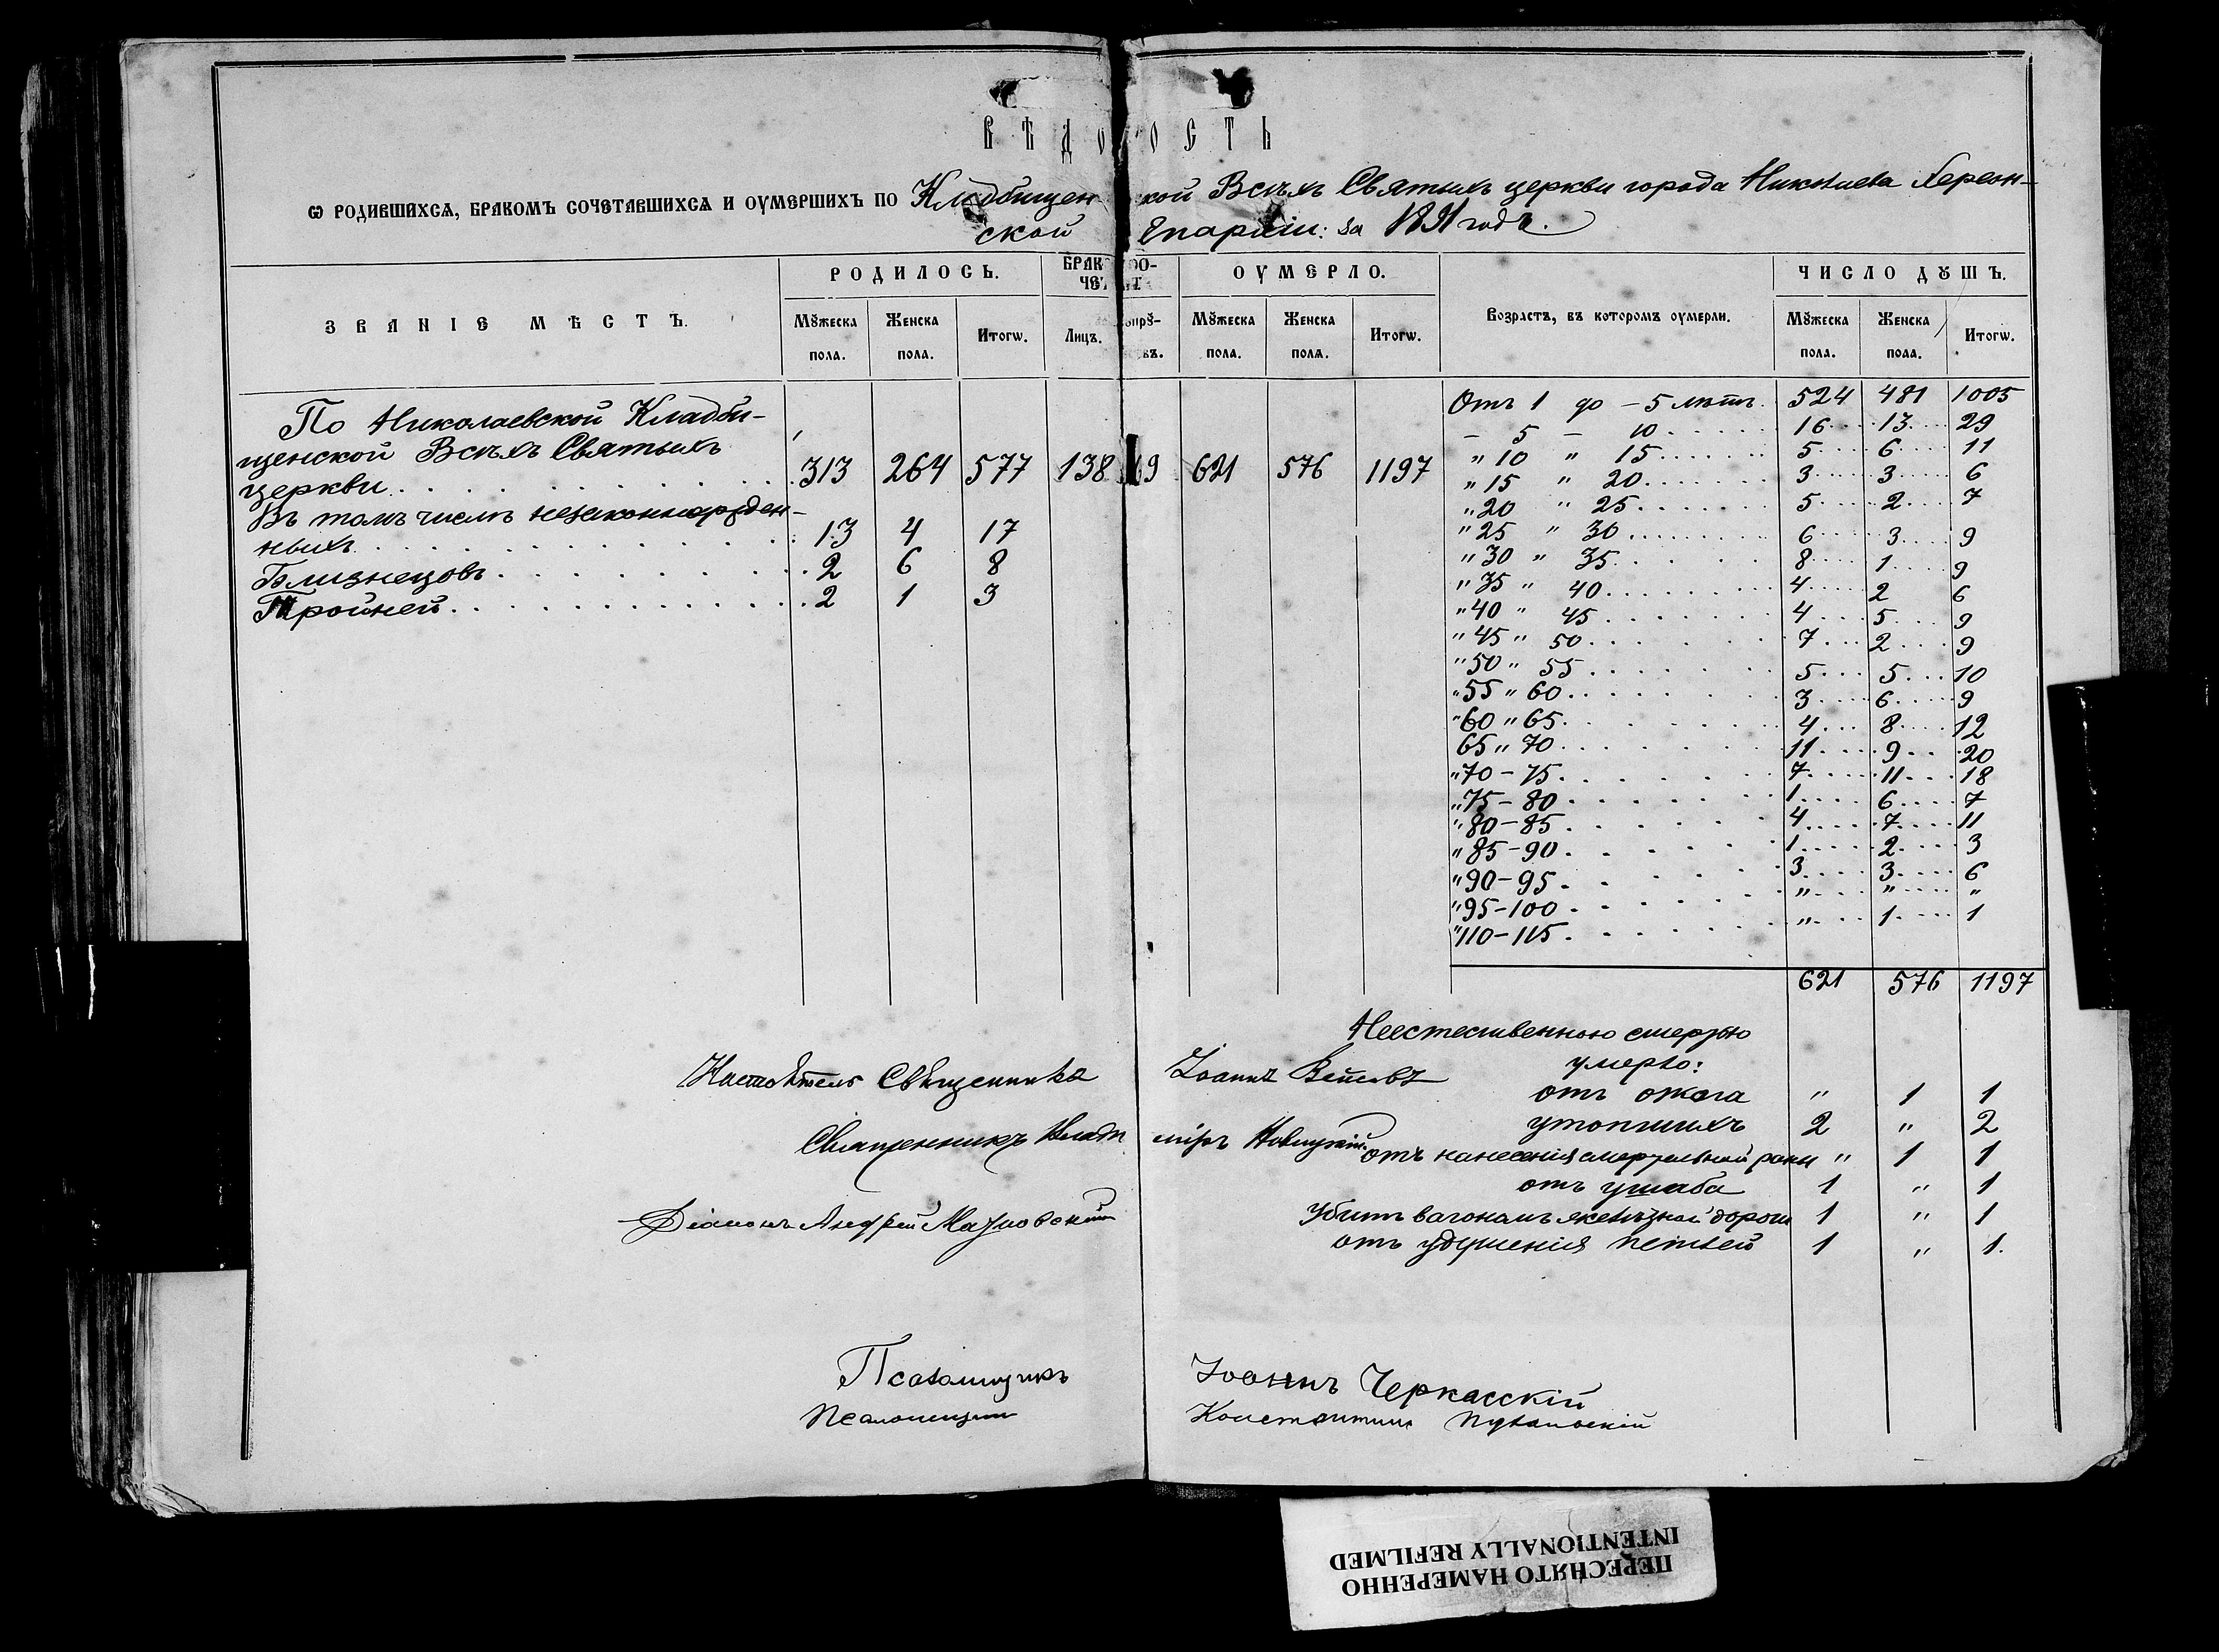 ВѢДОМОСТЬ
Ѡ РОДИВШИХСѦ, БРАКОМЪ СОЧЕТАВШИХСѦ И ОУМЕРШИХЪ ПО Кладбищенской Всѣхъ Святыхъ церкви города Николаева Херсон-
ской Епархіи: за 1891 годъ.
ЗВАНІЕ МѢСТЪ. РОДИЛОСЬ. БРАКО СО- ОУМЕРЛО. Возрастъ, въ которомъ оумерли. ЧИСЛО ДꙊШЪ.
ЧЕТ
Мꙋжеска пола. Женска пола. Итогѡ. Лицъ. Мꙋжеска пола. Женска пола. Итогѡ. Мꙋжеска пола. Женска пола. Итогѡ.
По Николаевской Кладби-
щенской Всѣхъ Святыхъ
церкви 313 264 577 138 69 621 576 1197
Въ томъ числѣ незаконнорожден-
ныхъ 13 4 17
Близнецовъ 2 6 8
Тройней 2 1 3
Отъ 1 до - 5 лѣтъ 524 481 1005
- 5 - 10 16 13 29
" 10 " 15 5 6 11
" 15 " 20 3 3 6
" 20 " 25 5 2 7
" 25 " 30 6 3 9
" 30 " 35 8 1 9
" 35 " 40 4 2 6
" 40 " 45 4 5 9
" 45 " 50 7 2 9
" 50 " 55 5 5 10
" 55 " 60 3 6 9
" 60 " 65 4 8 12
65 " 70 11 9 20
" 70 - 75 7 11 18
" 75 - 80 1 6 7
" 80 - 85 4 7 11
" 85 - 90 1 2 3
" 90 - 95 3 3 6
" 95 - 100 " " "
" 110 - 115 " 1 1
621 576 1197
Неестественною смертью
умерло:
отъ ожога " 1 1
утопшихъ 2 " 2
отъ нанесенія смертельной раны " 1 1
отъ ушиба 1 " 1
Убитъ вагономъ желѣзной дороги 1 " 1
отъ удушенія петлей 1 " 1.
Настоятель Священникъ Іоаннъ
Священникъ Владиміръ Новицкій
Діаконъ Андрей
Псаломщикъ Іоаннъ Черкасскій
Псаломщикъ Константинъ
ПЕРЕСНЯТО НАМЕРЕННО
INTENTIONALLY REFILMED